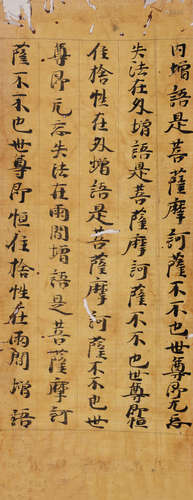 內增語是菩薩摩訶薩不不也世尊即无忘
失法在外增語是菩薩摩訶薩不不也世尊即恒
住捨性在外增語是菩薩摩訶薩不不也世
尊即无忘失法在兩間增語是菩薩摩訶
薩不不也世尊即恒住捨性在兩間增語